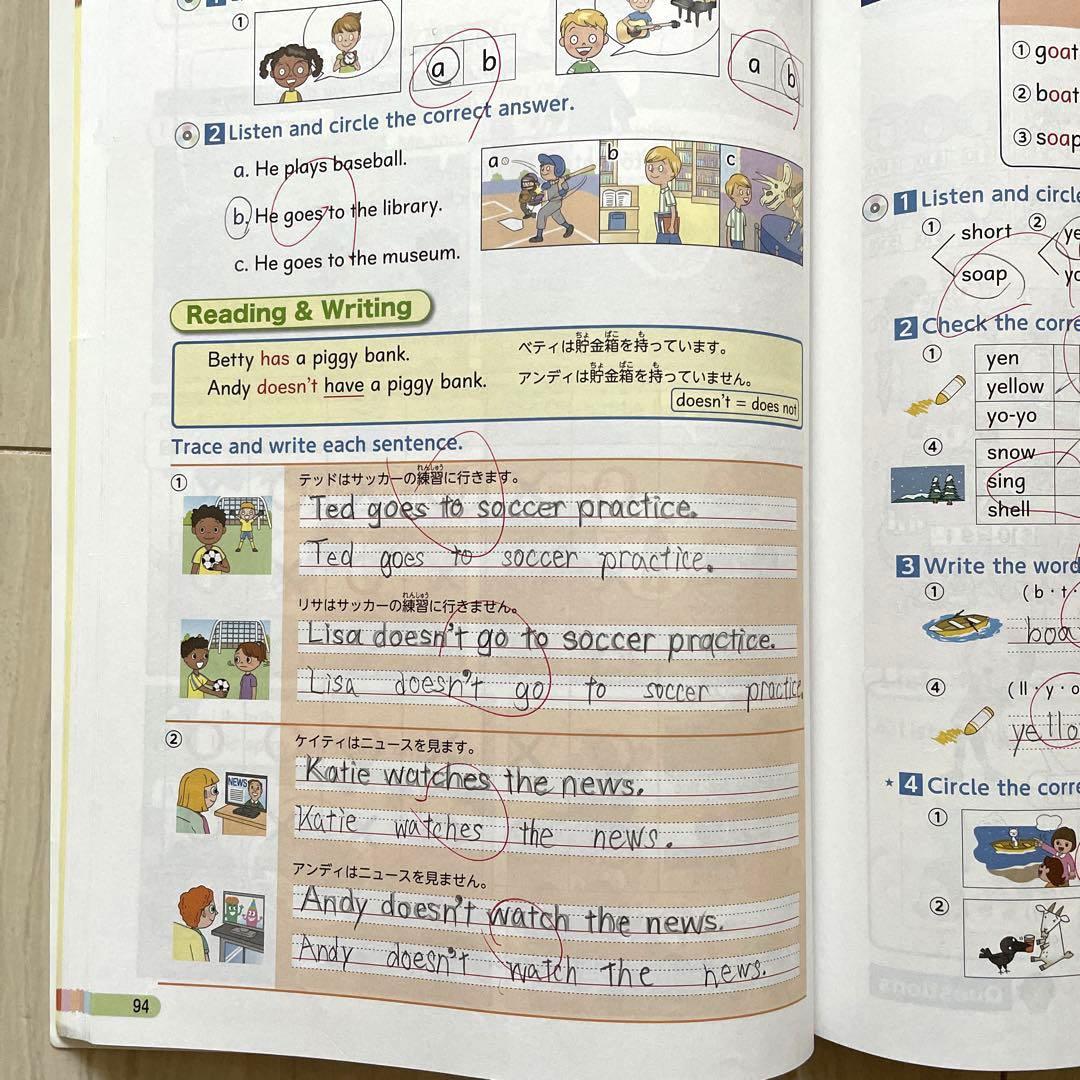 ①
a b
a b
2 Listen and circle the correct answer.
a. He plays baseball.
b. He goes to the library.
c. He goes to the museum.
a b c
Reading & Writing
Betty has a piggy bank.
ベティは貯金箱を持っています。
Andy doesn't have a piggy bank.
アンディは貯金箱を持っていません。
doesn't = does not
Trace and write each sentence.
①
テッドはサッカーの練習に行きます。
Ted goes to soccer practice.
Ted goes to soccer practice.
リサはサッカーの練習に行きません。
Lisa doesn't go to soccer practice.
Lisa doesn't go to soccer practice
②
ケイティはニュースを見ます。
NEWS
Katie watches the news.
Katie watches the news.
アンディはニュースを見ません。
Andy doesn't watch the news.
Andy doesn't watch the news.
94
① goat
② boat
③ soap
1 Listen and circle
① short ②
soap
2 Check the corre
①
yen
yellow
yo-yo
④
snow
sing
shell
3 Write the word
① (b・t・
boa
④ (ll・y・o
yello
★ 4 Circle the corre
①
②
Questions